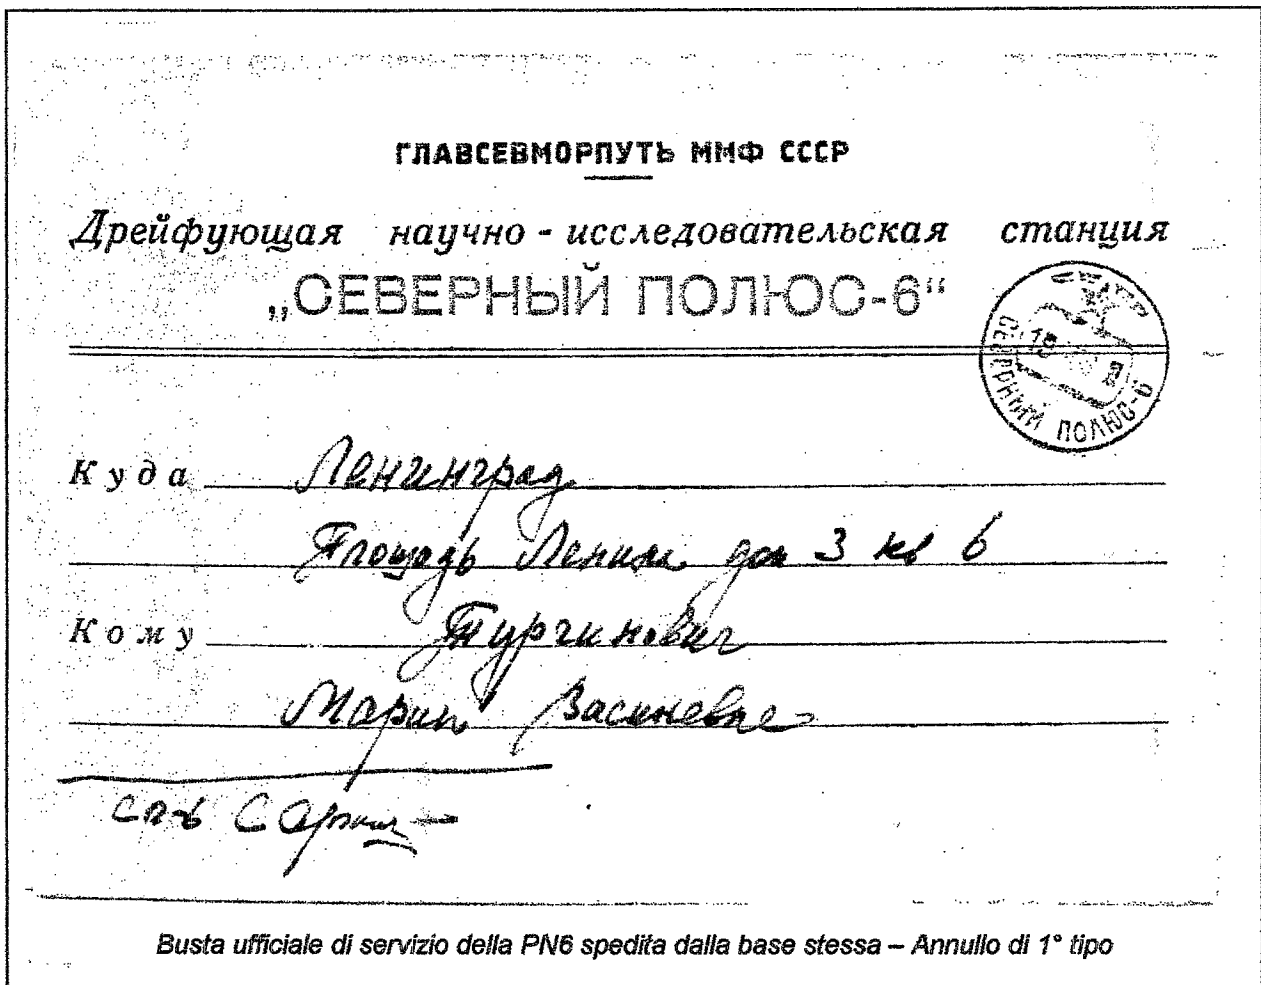 ГЛАВСЕВМОРПУТЬ ММФ СССР
Дрейфующая научно-исследовательская станция
„СЕВЕРНЫЙ ПОЛЮС-6“
СЕВЕРНЫЙ ПОЛЮС-6
Куда Ленинград
Площадь Ленина дом 3 кв 6
Кому Турчинович
Марии
СП-6
Busta ufficiale di servizio della PN6 spedita dalla base stessa – Annullo di 1° tipo